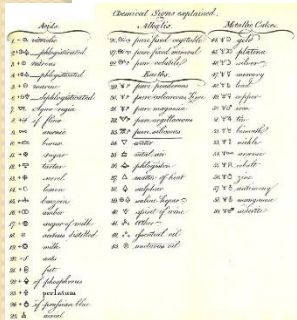 Chemical Signs explained.
Acids.
vitriolic
phlogisticated
nitrous
phlogisticated
marine
dephlogisticated
Aqua regia
of fluor
arsenic
borax
sugar
tartar
sorrel
lemon
benzoin
amber
sugar of milk
acetous distilled
milk
ants
fat
of phosphorus
perlatum
of prussian blue
aerial
Alkalis.
pure fixed vegetable
pure fixed mineral
pure volatile
Earths.
pure ponderous
pure calcareous Lime
pure magnesia
pure argillaceous
pure siliceous
water
vital air
phlogiston
matter of heat
sulphur
saline hepar
spirit of wine
æther
essential oil
unctuous oil
Metallic Calces.
gold
platina
silver
mercury
lead
copper
iron
tin
bismuth
nickle
arsenic
cobalt
zinc
antimony
manganese
siderite